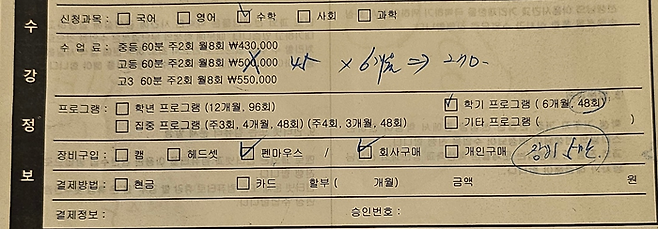 수강정보
신청과목 : □ 국어 □ 영어 ☑ 수학 □ 사회 □ 과학
수 업 료 : 중등 60분 주2회 월8회 ₩430,000
고등 60분 주2회 월8회 ₩500,000 × 6개월 ⇒ 270-
고3 60분 주2회 월8회 ₩550,000
프로그램 : □ 학년 프로그램 (12개월, 96회) ☑ 학기 프로그램 (6개월, 48회)
□ 집중 프로그램 (주3회, 4개월, 48회) (주4회, 3개월, 48회) □ 기타 프로그램 ( )
장비구입 : □ 캠 □ 헤드셋 ☑ 펜마우스 / ☑ 회사구매 □ 개인구매
결제방법 : □ 현금 □ 카드 할부 ( 개월) 금액 원
결제정보 : 승인번호 :